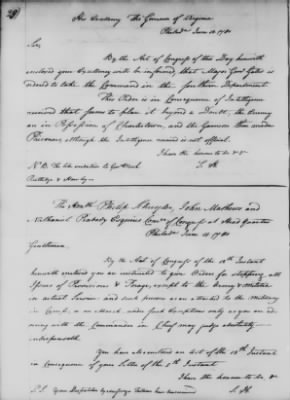 His Excellency The Governor of Virginia
Philada June 13. 1780
Sir,
By the Act of Congress of this Day herewith
enclosed your Excellency will be informed, that Major Genl Gates is
ordered to take the Command in the Southern Department
This Order is in Consequence of Intelligence
received that seems to place it beyond a Doubt, the Enemy
are in Possession of Charlestown, and the Garrison their
Prisoners, although the Intelligence received is not official.
I have the honour to be &c
S. H.
N.B. The like
Rutledge &
The Honble Philip Schuyler, John Mathews and
Nathaniel Peabody Esquires Comee of Congress at Head Quarters
Philada June 1780
Gentlemen,
By the Act of Congress of the 12th Instant
herewith enclosed you are instructed to give Orders for stopping all
Issues of Provisions & Forage, except to the Army & Militia
in actual Service and such persons as are attached to the Military
in Camp, or on March under such Exceptions only as you
with the Commander in Chief may judge absolutely
indispensable.
You have also enclosed an Act of the 10th Instant
in Consequence of your Letter of the 5th Instant.
I have the honour to be &c
P.S. Your Dispatches by
S. H.